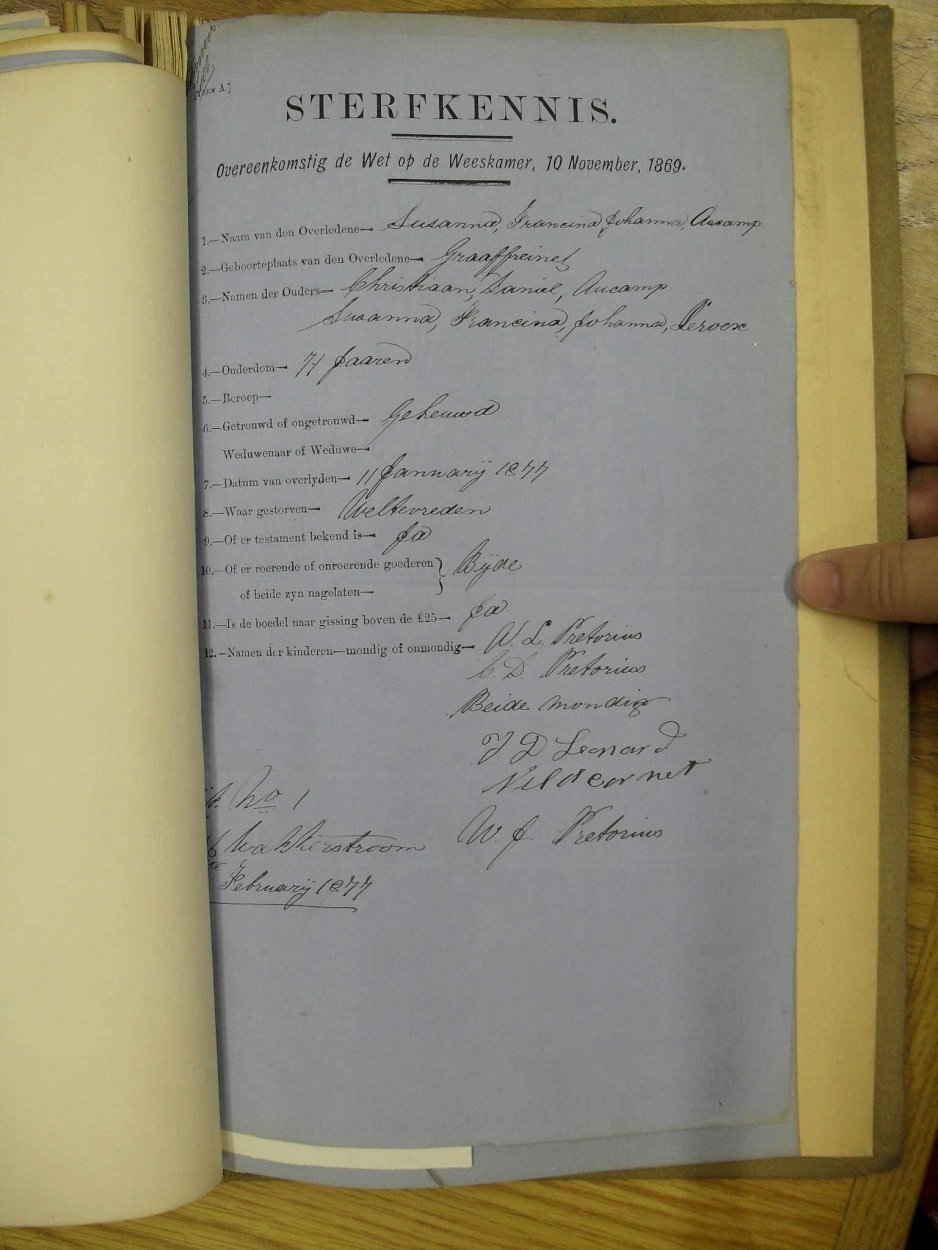 STERFKENNIS.
Overeenkomstig de Wet op de Weeskamer, 10 November, 1869.
1.—Naam van den Overledene— Susanna, Francina, Johanna, Aucamp
2.—Geboorteplaats van den Overledene— Graaffreinet
3.—Namen der Ouders— Christiaan, Daniel, Aucamp
Susanna, Francina, Johanna, Leroex
4.—Ouderdom— 71 Jaaren
5.—Beroep—
6.—Getrouwd of ongetrouwd— Geheuwd
Weduwenaar of Weduwe—
7.—Datum van overlyden— 11 Januarij 1877
8.—Waar gestorven— Weltevreden
9.—Of er testament bekend is— Ja
10.—Of er roerende of onroerende goederen } Bijde
of beide zyn nagelaten—
11.—Is de boedel naar gissing boven de £25— Ja
12.—Namen der kinderen—mondig of onmondig— W. L. Pretorius
C. D. Pretorius
Beide mondig
J D Leonard
Veldcornet
No 1
W. J. Pretorius
Wakkerstroom
Februarij 1877